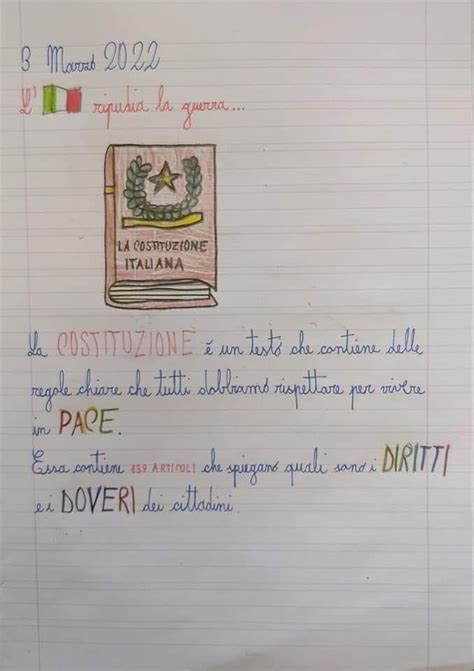 3 Marzo 2022
L' ripudia la guerra...
LA COSTITUZIONE
ITALIANA
La COSTITUZIONE é un testo che contiene delle
regole chiare che tutti dobbiamo rispettare per vivere
in PACE.
Essa contiene 139 ARTICOLI che spiegano quali sono i DIRITTI
e i DOVERI dei cittadini.